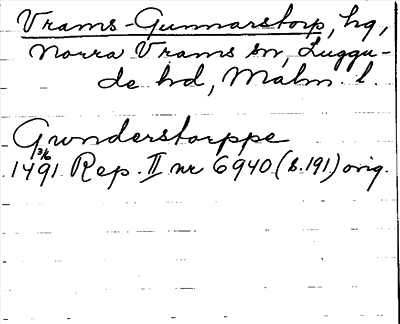 Vrams-Gunnarstorp, hg,
Norra Vrams sn, Luggu-
de hd, Malm. l.
Gwnderstorppe
1491 3/6 Rep. II nr 6940 (s. 191) orig.